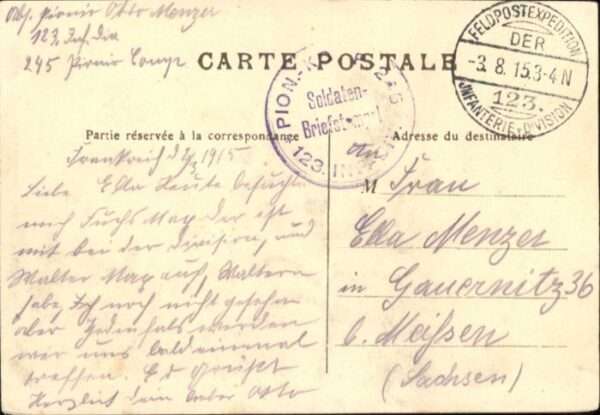 Abs. Pionir Otto Menzer
123. Inf. Div
245 Pionir Comp.
CARTE POSTALE
FELDPOSTEXPEDITION
DER
-3.8.15.3-4N
123.
INFANTERIE-DIVISION
PION.- 245
Soldaten-
Briefstempel
123. INF.
Partie réservée à la correspondance
Adresse du destinataire
Frankreich d 2/8 1915
Liebe Ella Heute besuchte
mich Fuchs Max der ist
mit bei der Division, und
Walter Max auch, Waltern
habe, Ich noch nicht gesehen
aber Jedenfals werden
wir uns bald einmal
treffen. Es grüßt
Herzlich dein lieber Otto
An
M Frau
Ella Menzer
in Gauernitz 36
b. Meißen
(Sachsen)